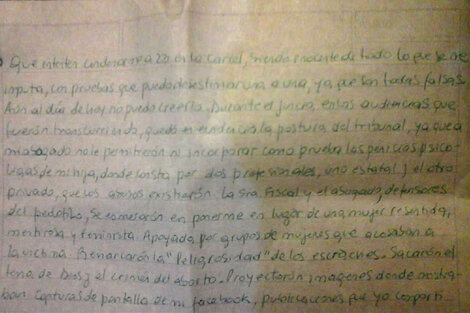 Que intenten condenarme a 20 en la carcel, siendo inocente de todo lo que se me
imputa, con pruebas que puedo desestimar una a una, ya que son todas falsas.
Aún al día de hoy no puedo creerlo. Durante el juicio, en las audiencias que
fueron transcurriendo, quedó en evidencia la postura del tribunal, ya que a
mi abogado no le permitieron ni incorporar como prueba los pericias psico-
lógicas de mi hija, donde consta por dos profesionales, uno estatal y el otro
privado, que los abusos existieron. La Sra. Fiscal y el abogado, defensores
del pedófilo, se esmeraron en ponerme en lugar de una mujer resentida,
mentirosa y feminista. Apoyada por grupos de mujeres que acosaban a
la victima. Remarcaron la "Peligrosidad" de los escraches. Sacaron el
tema de Dios y el crimen del aborto. Proyectaron imagenes donde mostra-
ban capturas de pantalla de mi facebook, publicaciones que yo compartí